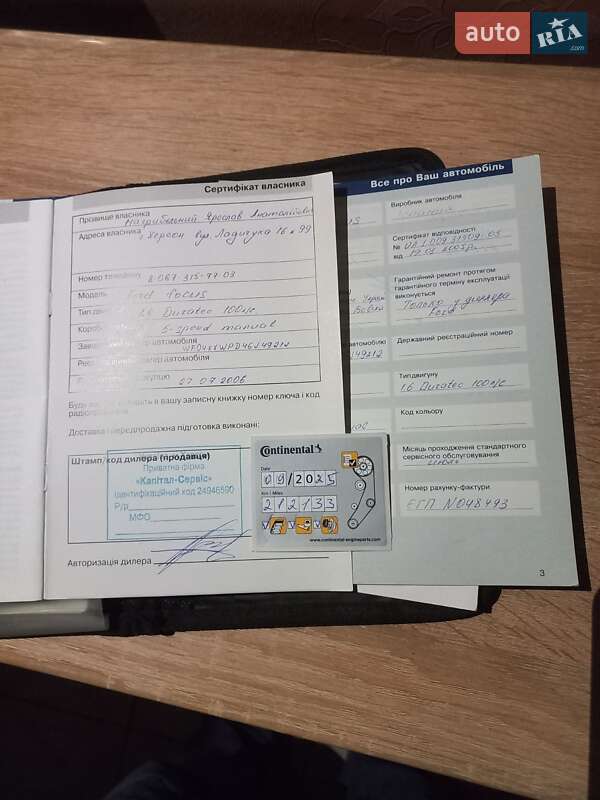 auto RIA .com
Сертифікат власника
Прізвище власника Нагрибельний Ярослав Анатолійович
Адреса власника г. Херсон вул. Ладичука 16 99
Номер телефону 8 067-315-77-03
Модель Ford Focus
Тип дв 1,6 Duratec 100 л/с
Короб 5-speed manual
Заво автомобіля
Реє номер автомобіля
07.07.2006
Доставка і передпродажна підготовка виконані:
Штамп/код дилера (продавця)
Приватна фірма
«Капітал-Сервіс»
Ідентифікаційний код 24946590
Р/р
МФО
Авторизація дилера
Continental
Date
09/2025
Km / Miles
212133
www.continental-engineparts.com
Все про Ваш автомобіль
Виробник автомобіля
Сертифікат відповідності
№
від
Гарантійний ремонт протягом
гарантійного терміну експлуатації
виконується
Только у дилера
Ford
Державний реєстраційний номер
Тип двигуну
1,6 Duratec 100 л/с
Код кольору
Місяць проходження стандартного
сервісного обслуговування
Номер рахунку-фактури
ЕГП №048493
3